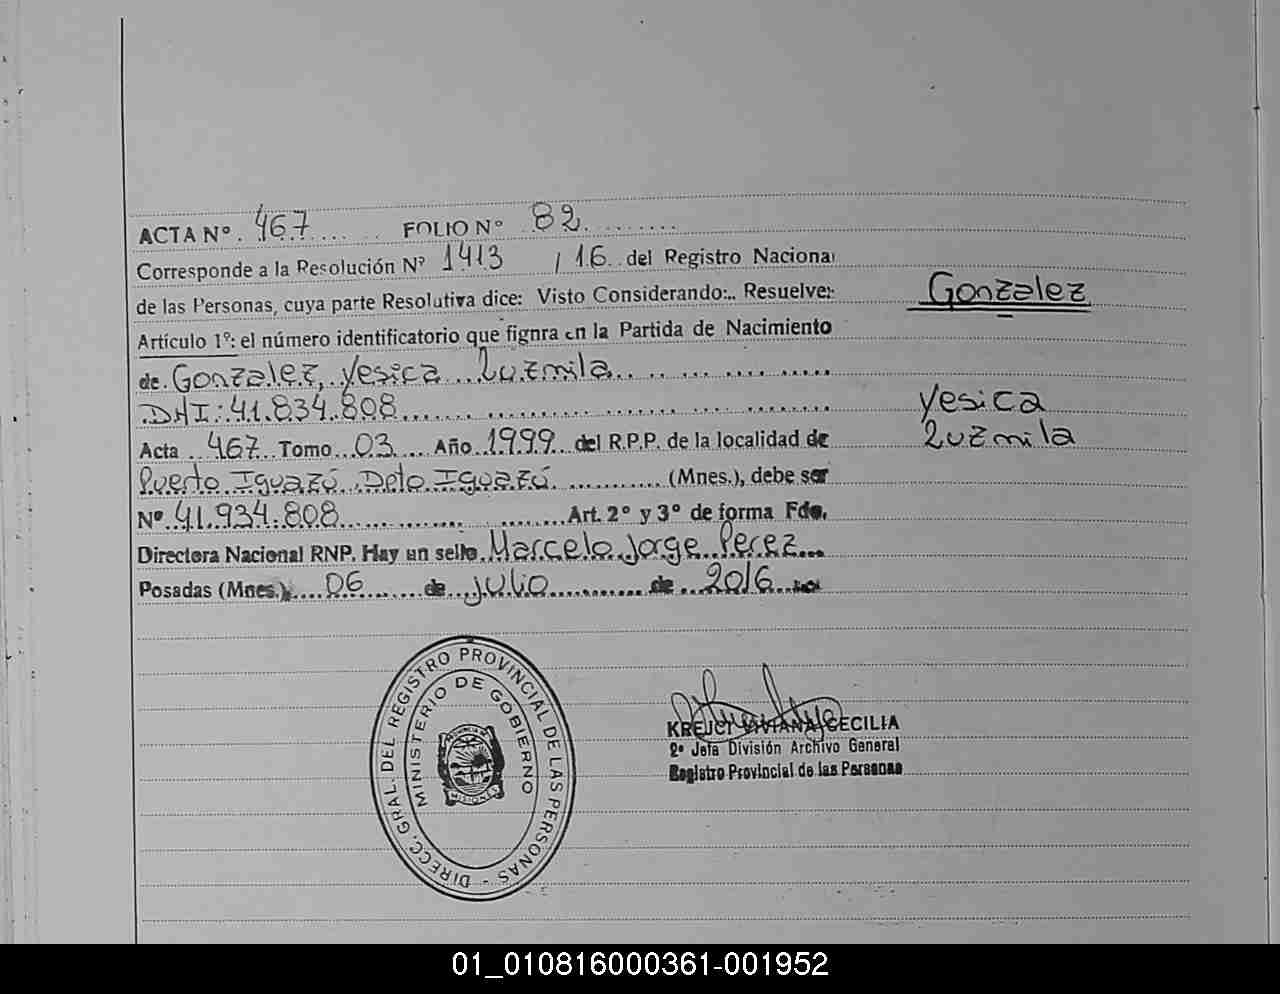 ACTA Nº. 467 FOLIO Nº 82
Corresponde a la Resolución Nº 1413 / 16 del Registro Naciona
de las Personas, cuya parte Resolutiva dice: Visto Considerando:.. Resuelve:
Gonzalez
Artículo 1º: el número identificatorio que fignra en la Partida de Nacimiento
de. Gonzalez, Yesica Luzmila
DNI: 41.834.808
Yesica
Luzmila
Acta 467 Tomo 03 Año 1999 del R.P.P. de la localidad de
Puerto Iguazú. Dpto. Iguazú (Mnes.), debe ser
Nº 41.934.808 Art. 2º y 3º de forma Fdo.
Directora Nacional RNP. Hay un sello. Marcelo Jorge Perez
Posadas (Mnes.) 06 de Julio de 2016
DIRECC. GRAL. DEL REGISTRO PROVINCIAL DE LAS PERSONAS -
MINISTERIO DE GOBIERNO
MISIONES
KREJCI VIVIANA CECILIA
2º Jefa División Archivo General
Registro Provincial de las Personas
01_010816000361-001952